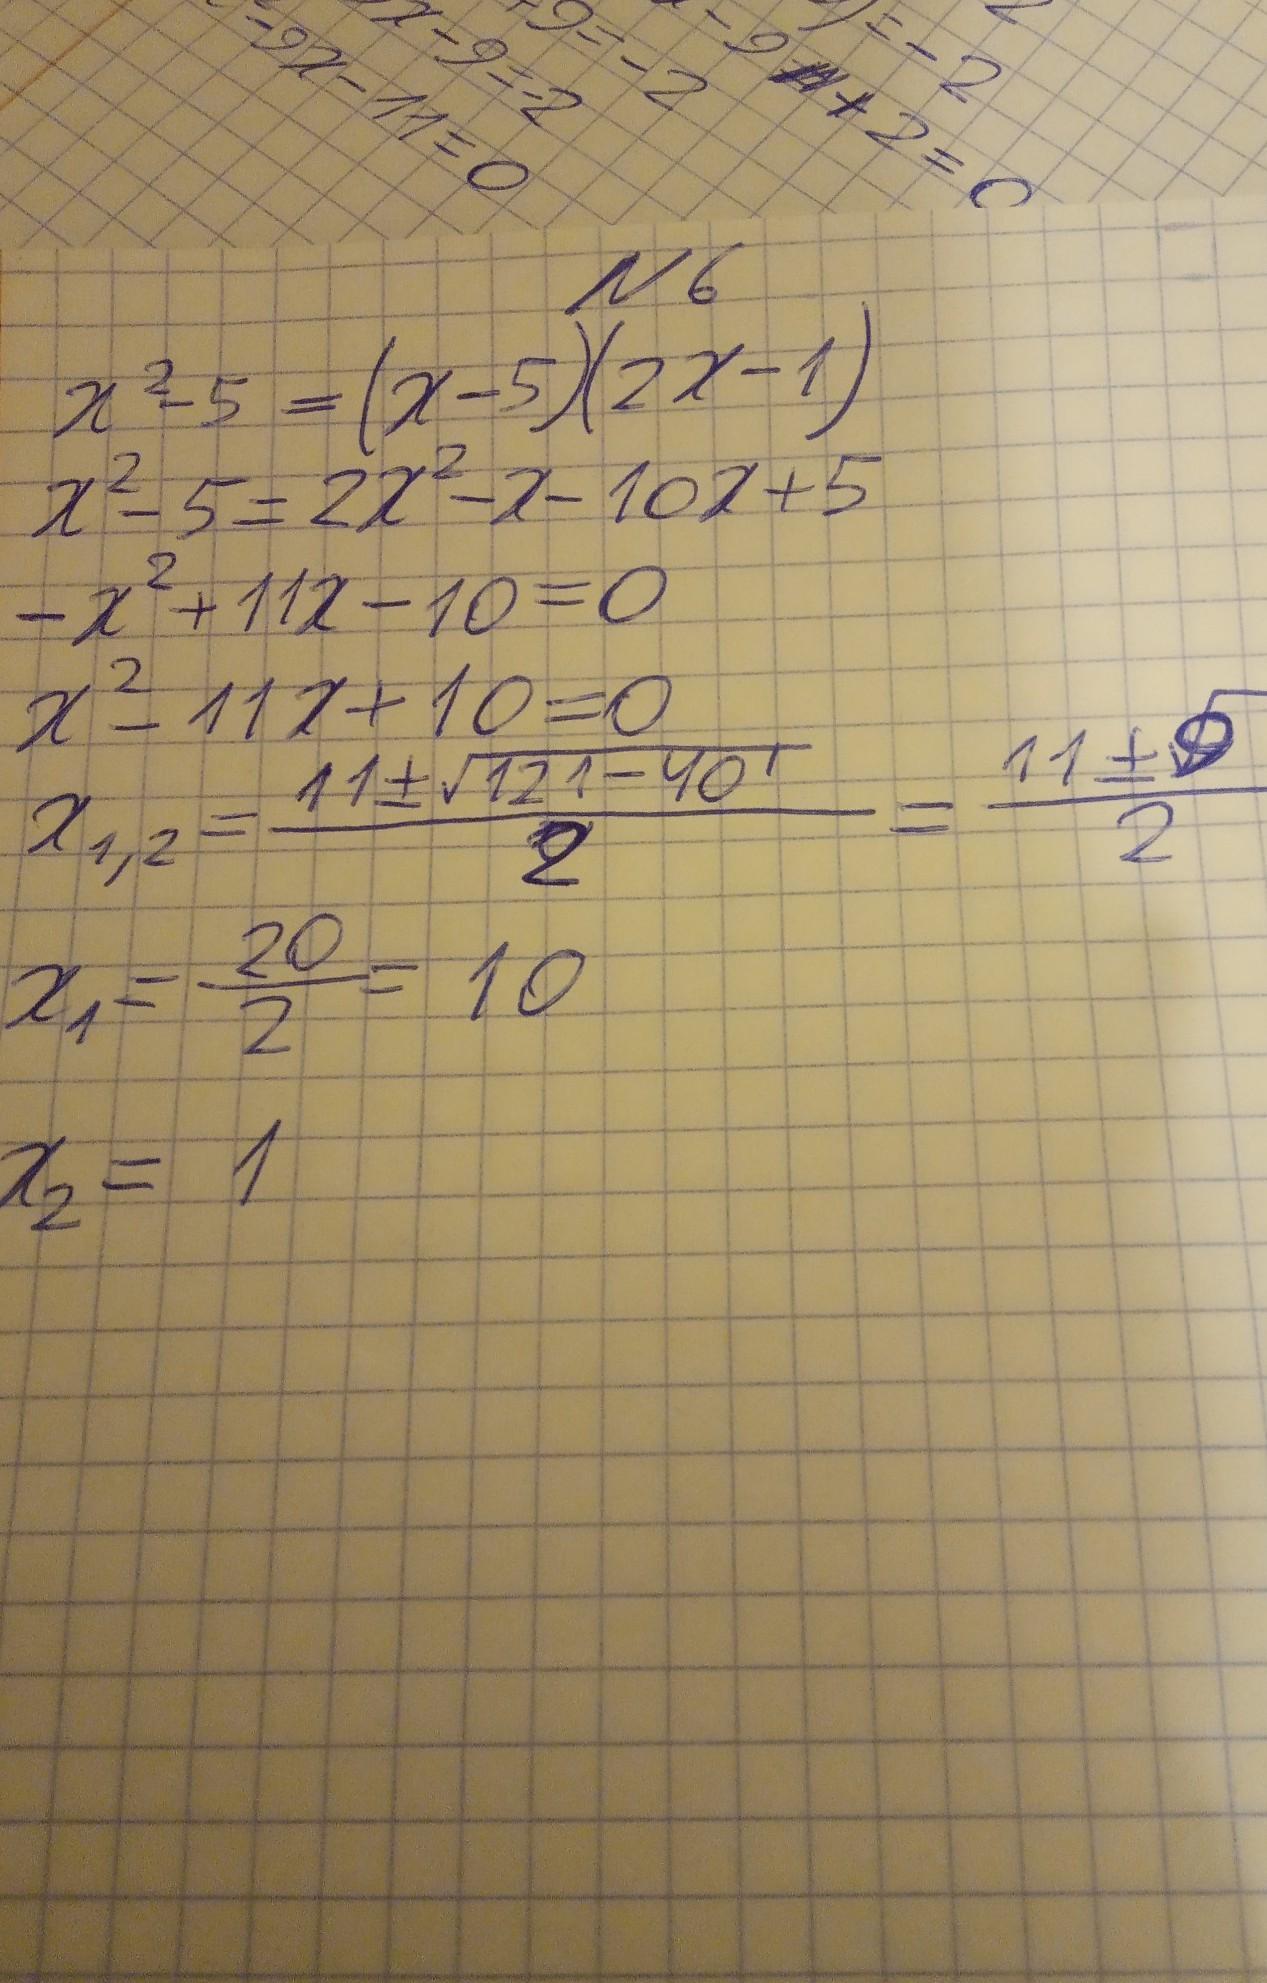 -9x-11=0
x-9=-2
+9=-2
-9 +2=0
)=-2
N6
x²-5=(x-5)(2x-1)
x²-5=2x²-x-10x+5
-x²+11x-10=0
x²-11x+10=0
x₁,₂=(11±√(121-40))/2=(11±9)/2
x₁=20/2=10
x₂=1